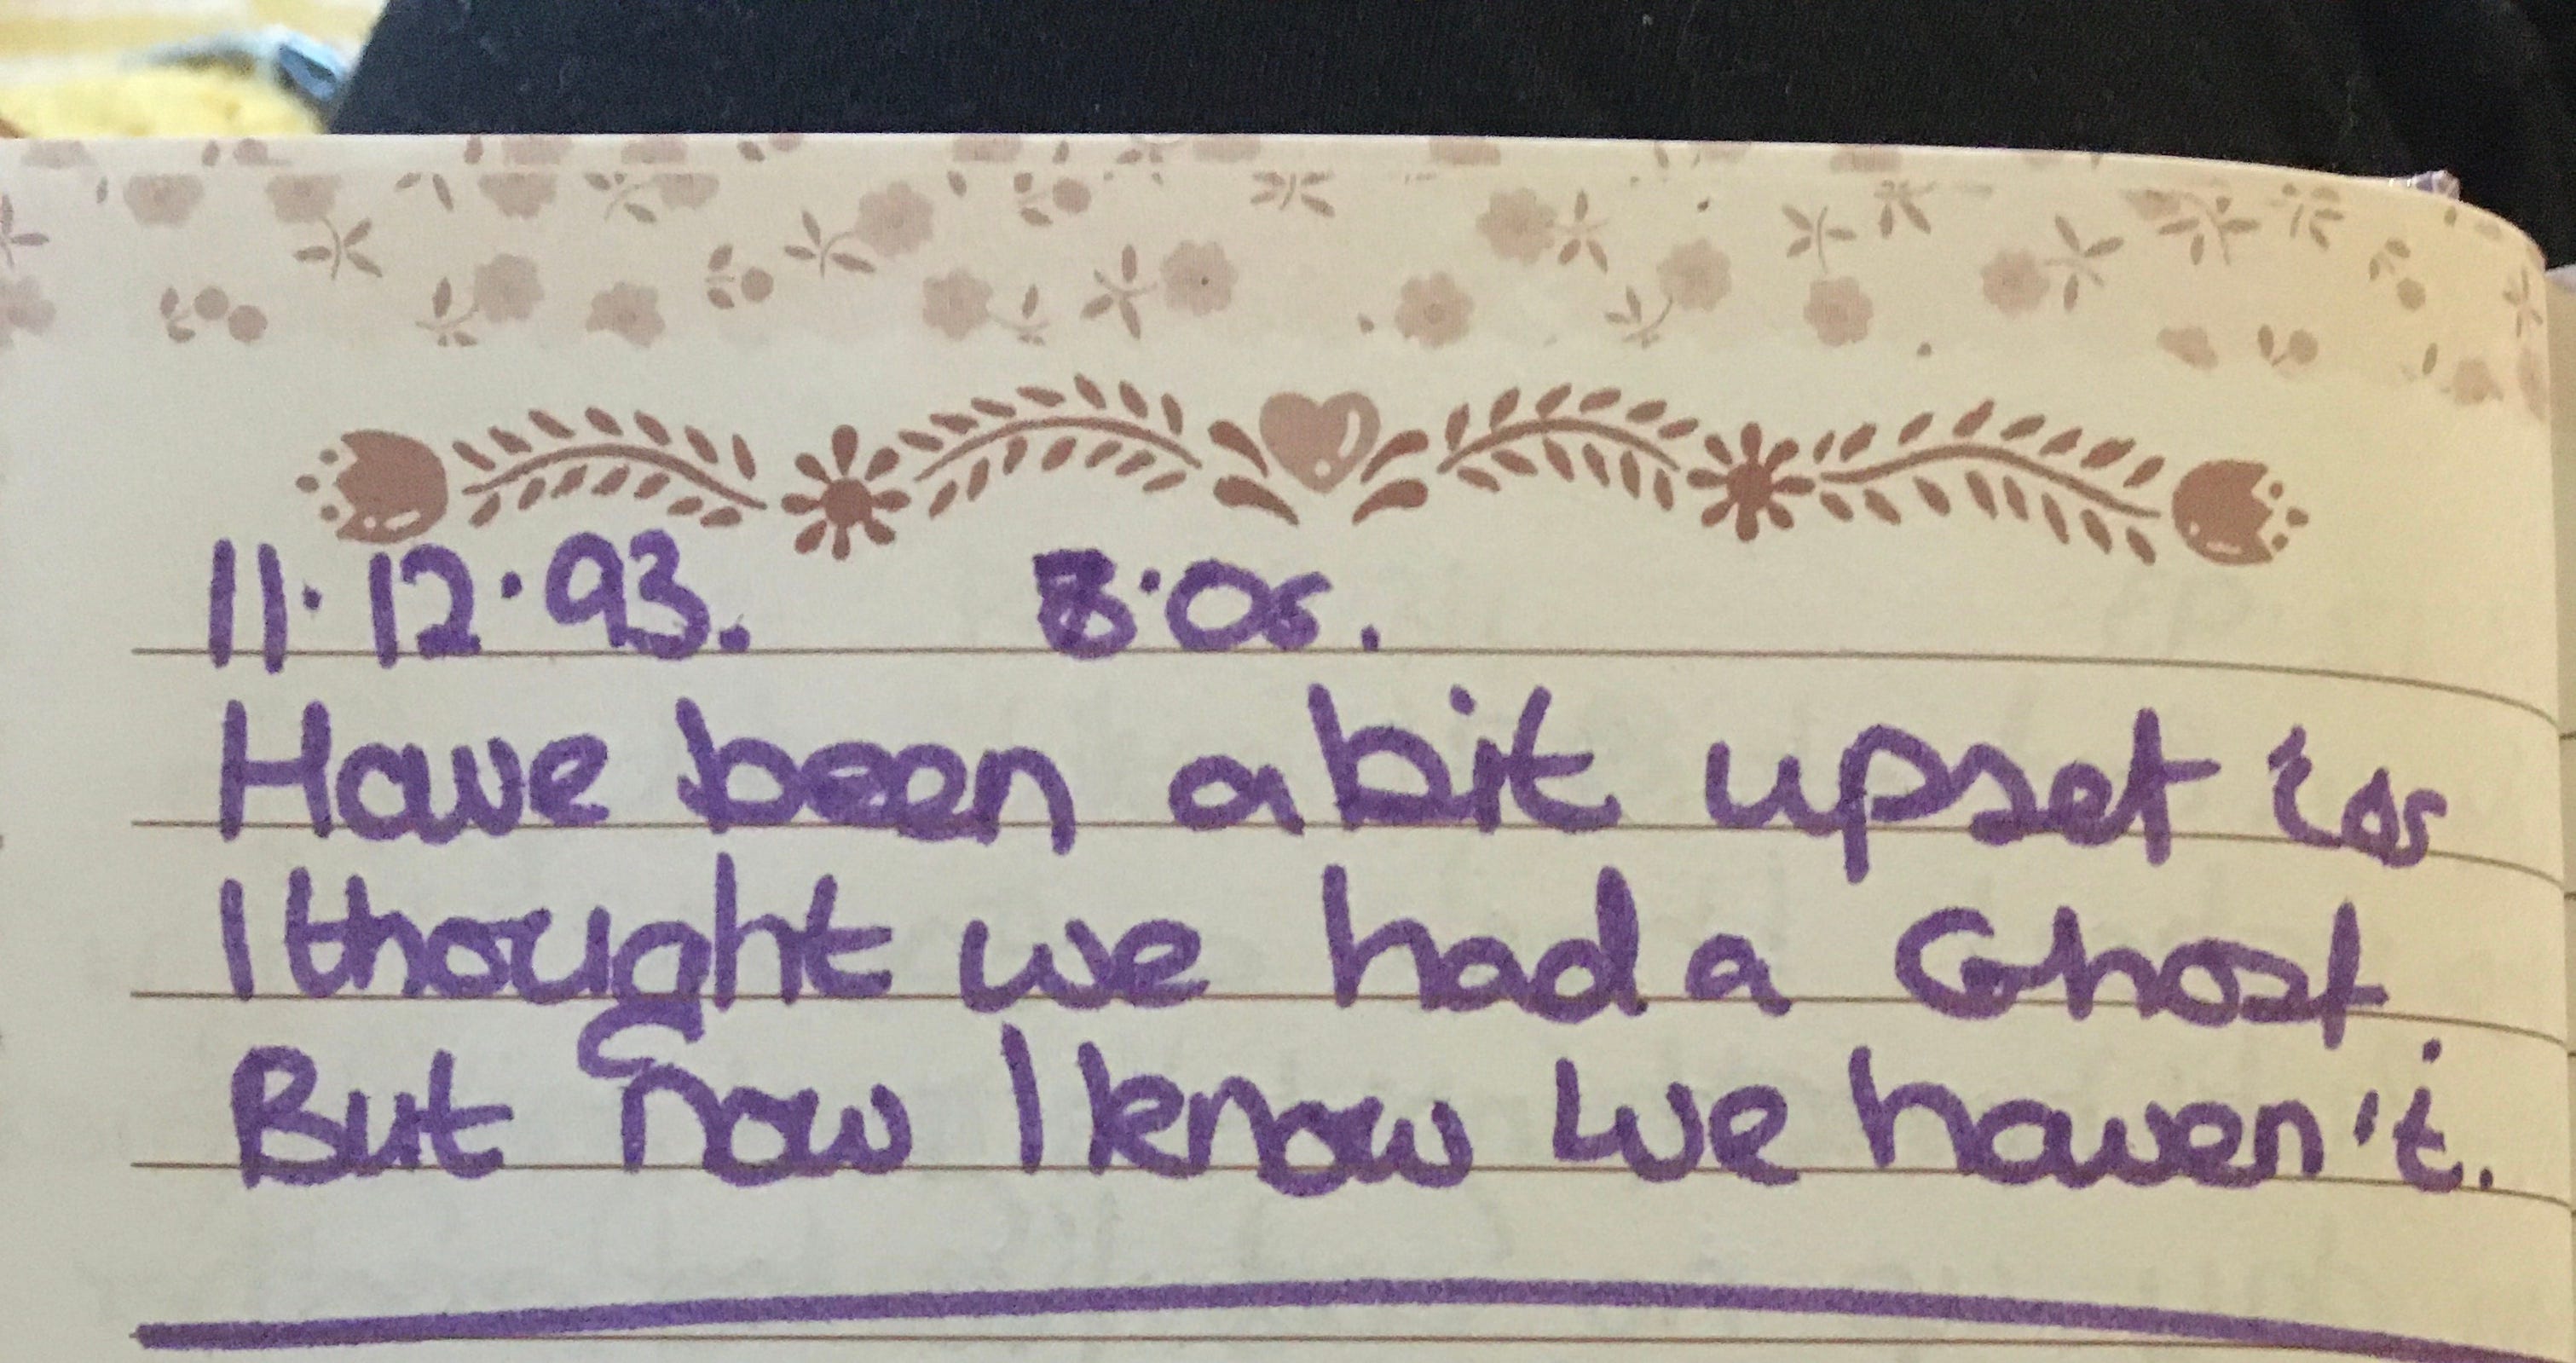 11.12.93. 8.05.
Have been a bit upset cos
I thought we had a Ghost.
But now I know we haven't.